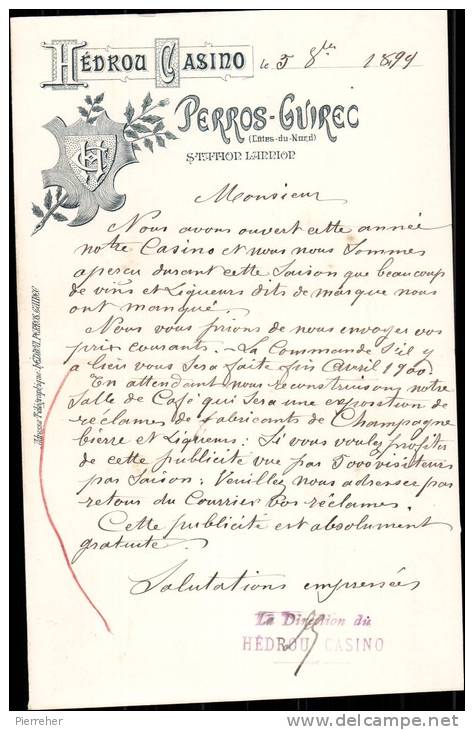 HÉDROU CASINO le 5 8bre 1899
PERROS-GUIREC
(Côtes-du-Nord)
STATION LANNION
Adresse Télégraphique: HÉDROU, PERROS-GUIREC
Monsieur
Nous avons ouvert cette année
notre Casino et nous nous sommes
aperçu durant cette Saison que beaucoup
de vins et Liqueurs dits de marque nous
ont manqué.
Nous vous prions de nous envoyer vos
prix courants. - La Commande s'il y
a lieu vous sera faite fin avril 1900. -
En attendant nous reconstruisons notre
Salle de Café qui sera une exposition de
réclames de fabricants de Champagne
bierre et Liqueurs: Si vous voulez profiter
de cette publicité vue par 5000 visiteurs
par Saison: Veuillez nous adresser par
retour du Courrier vos réclames.
Cette publicité est absolument
gratuite.
Salutations empressées
La Direction du
HÉDROU CASINO
Pierreher
www.delcampe.net